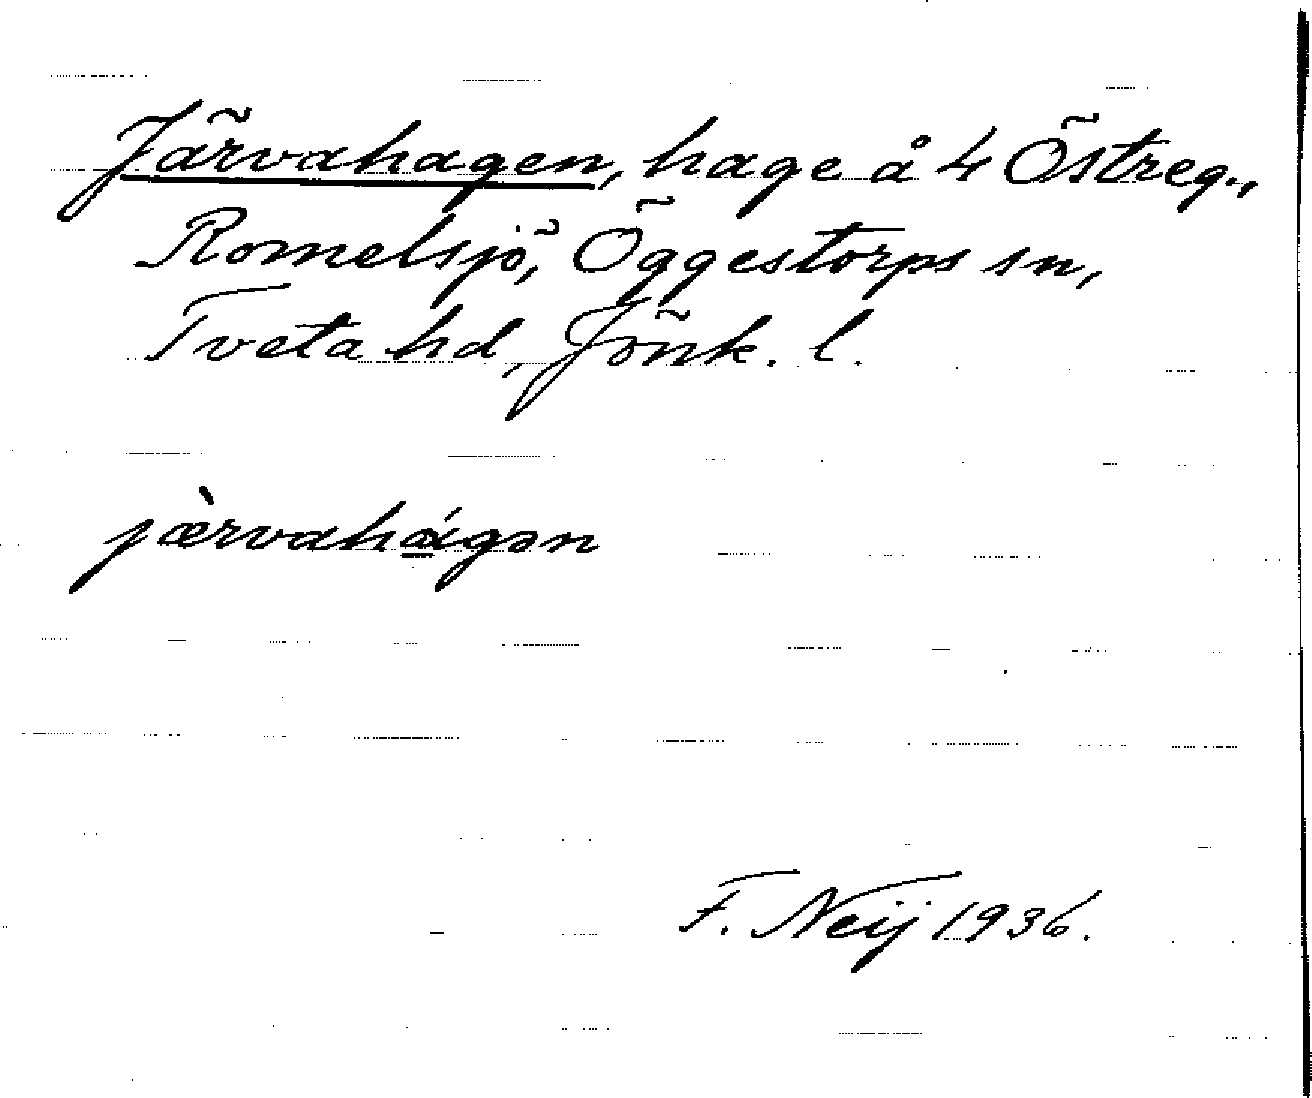 Järvahagen, hage å 4 Östreg.,
Romelsjö, Öggestorps sn,
Tveta hd, Jönk. l.
jæ̀rvahágən
F. Neij 1936.